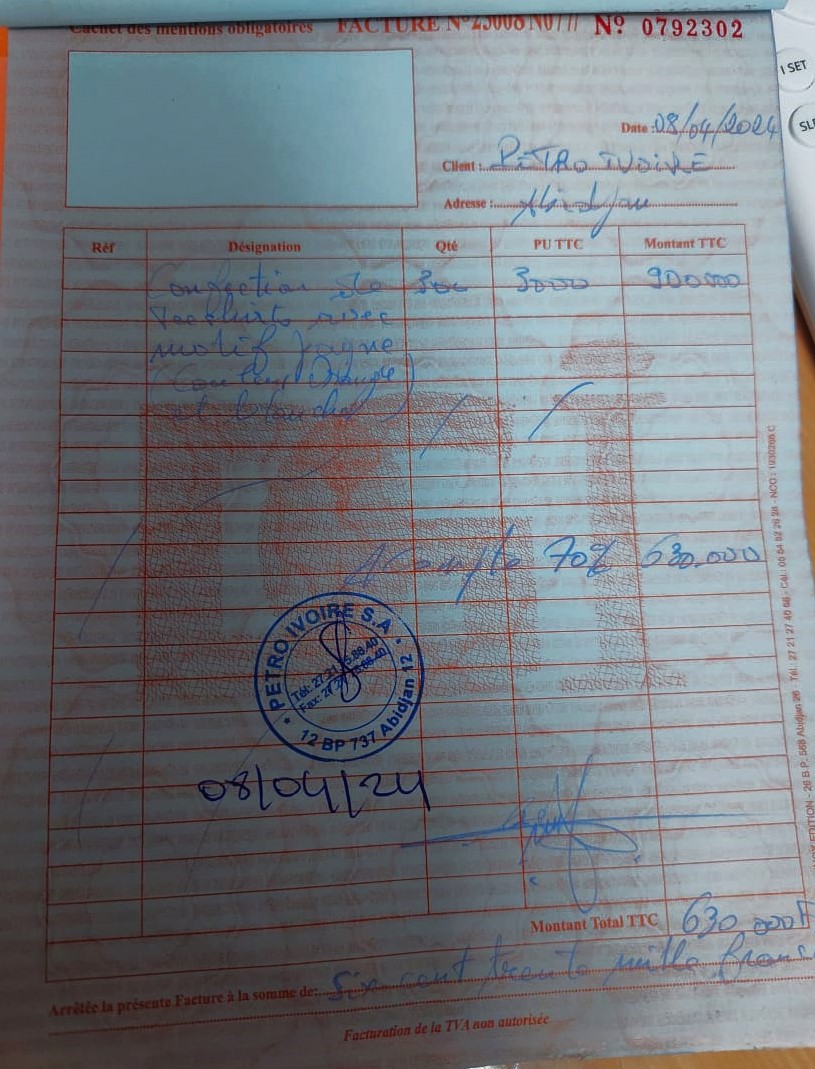 Cachet des mentions obligatoires FACTURE N°23008 N077 Nº 0792302
I SET
Date : 08/04/2024
Client : PETRO IVOIRE
Adresse : Abidjan
Réf Désignation Qté PU TTC Montant TTC
Confection de 300 3000 900000
Teeshirts avec
motif pagne
(Couleur Orange
et blanche)
A compte 70% 630.000
* PETRO IVOIRE S.A *
Tél: 27 21
Fax: 27
12 BP 737 Abidjan 12
08/04/24
Montant Total TTC 630,000F
Arrêtée la présente Facture à la somme de: Six cent trente mille francs
Facturation de la TVA non autorisée
EDITION - 26 B.P. 568 Abidjan 26 - Tél.: 27 21 27 40 66